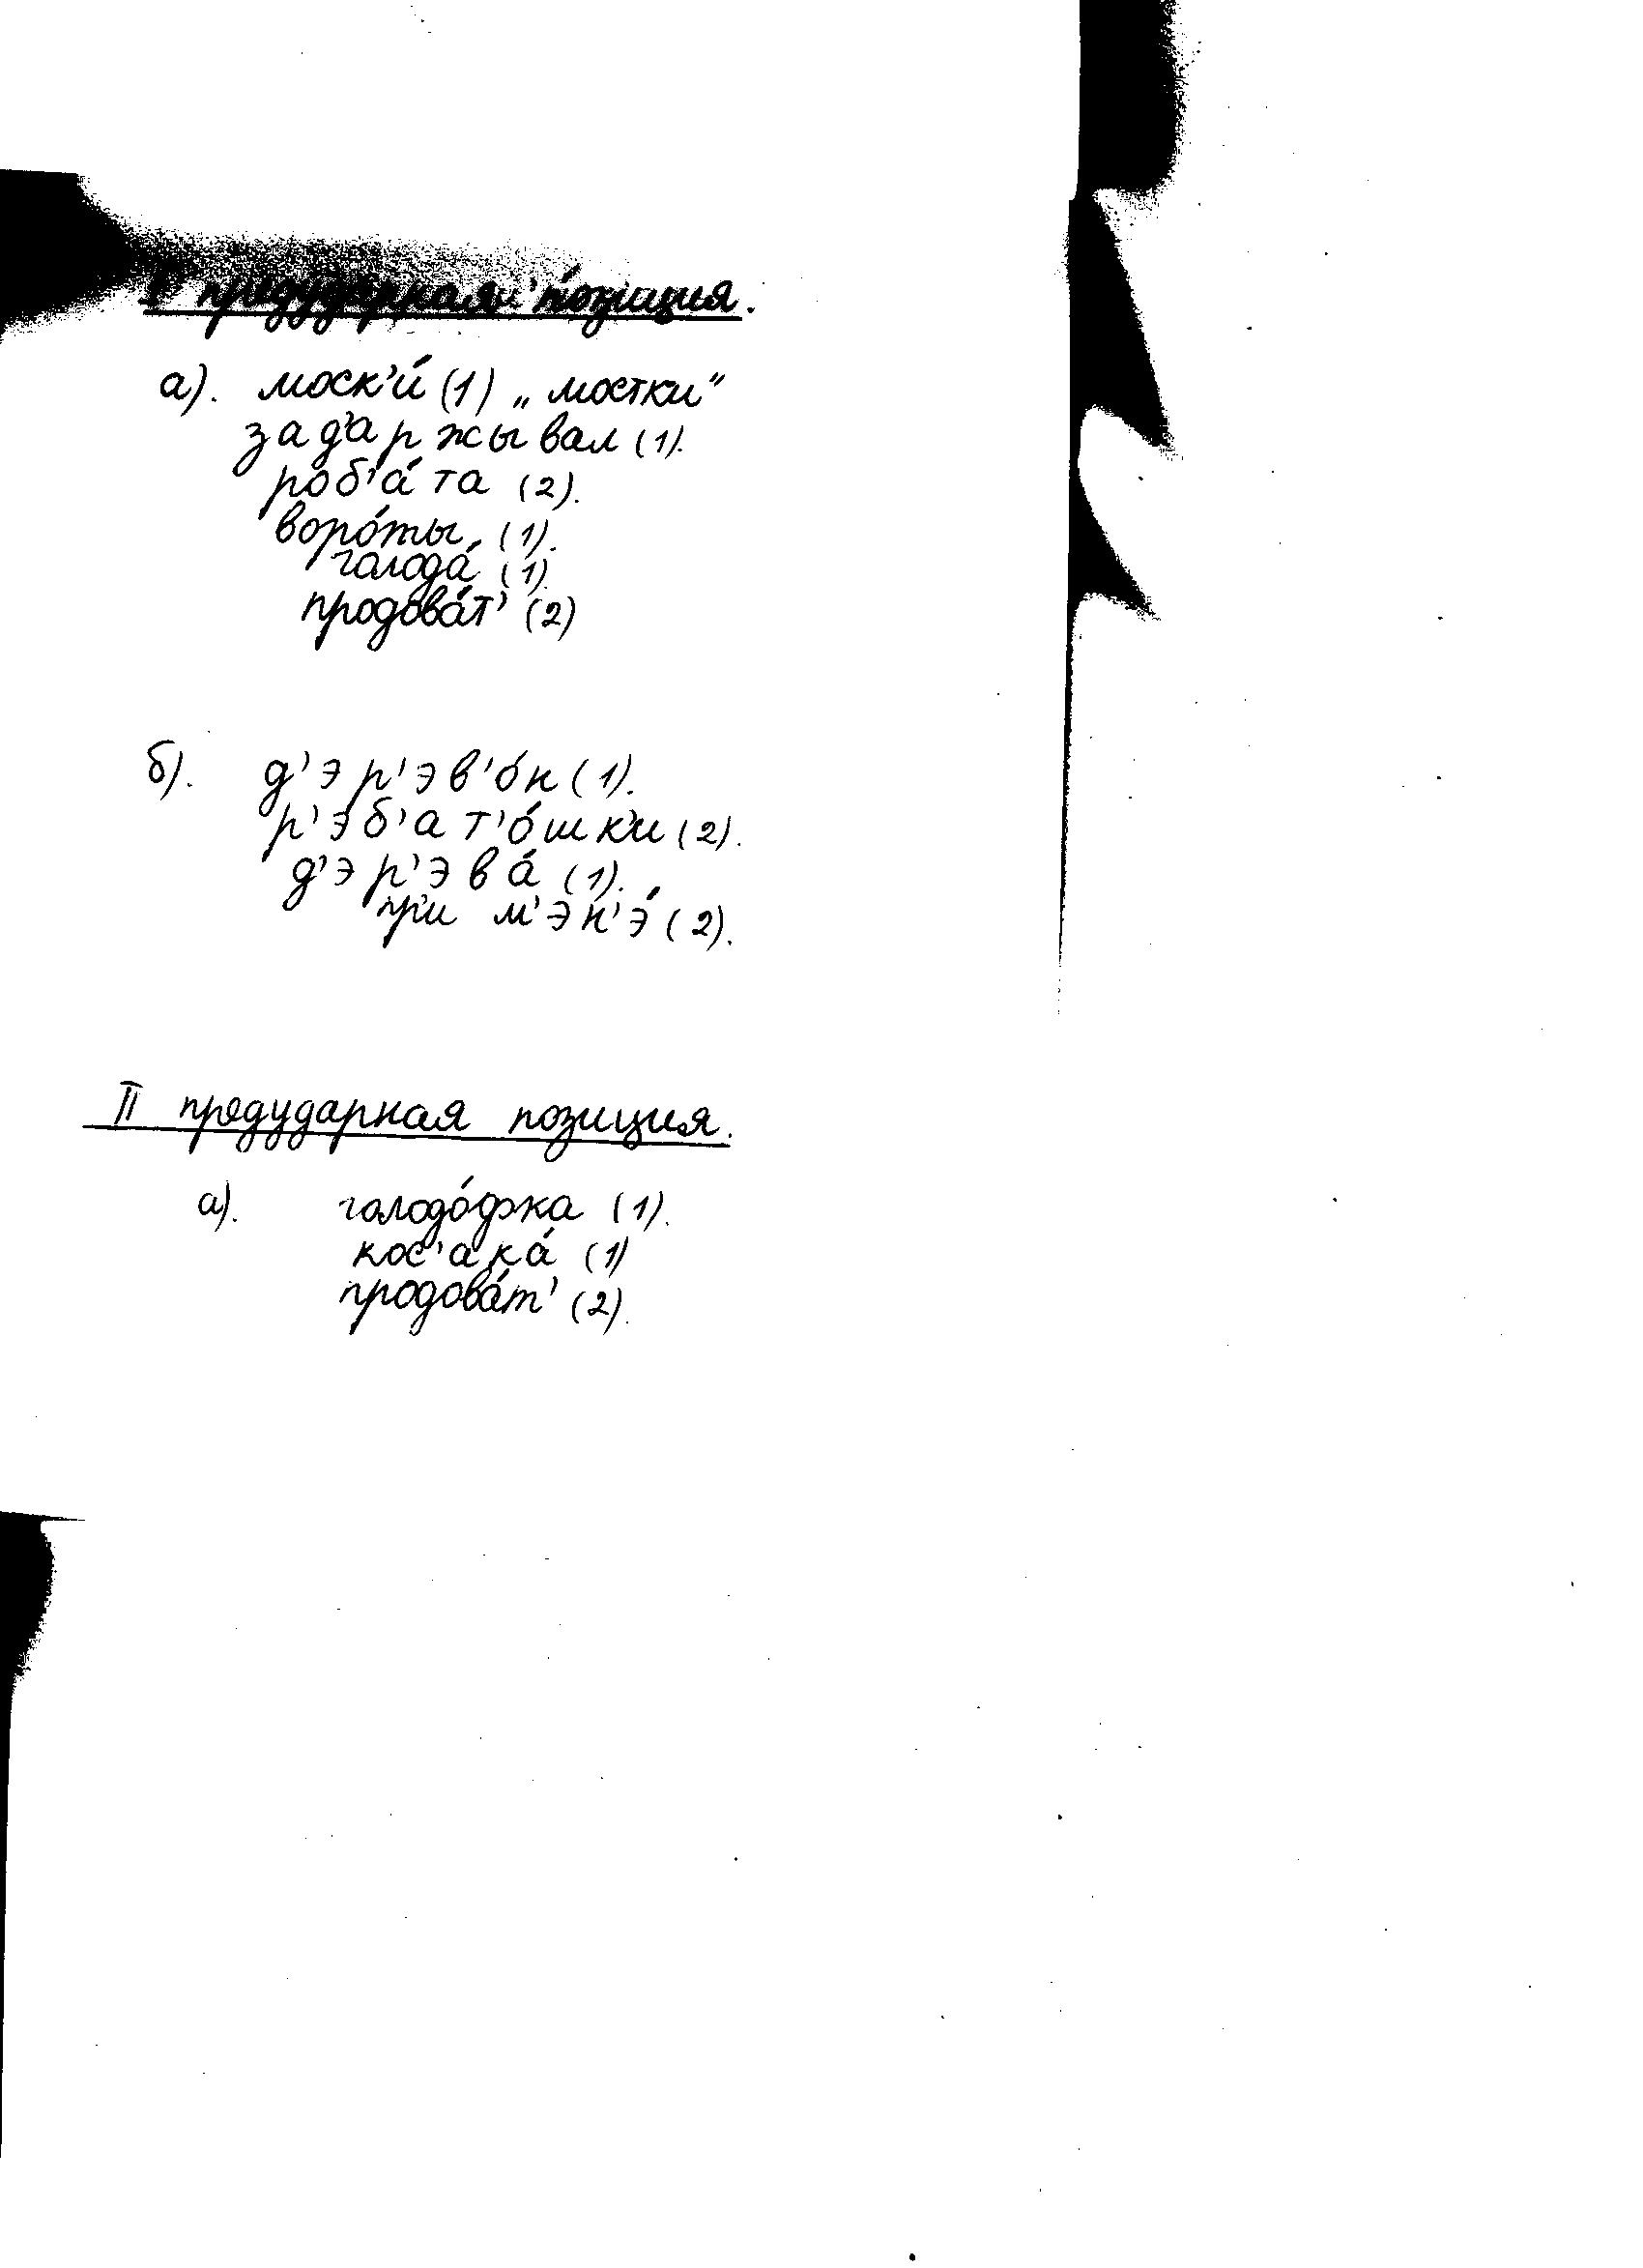 I предударная позиция.
а). моск'и́ (1) „мостки"
зад'аржывал (1).
роб'а́та (2).
воро́ты (1).
голода́ (1)
продова́т' (2)
б). д'эр'эв'о́н (1).
р'эб'ат'о́шк'и (2).
д'эр'эва́ (1).
пр'и м'эн'э́ (2).
II предударная позиция.
а). голодо́фка (1).
кос'ака́ (1)
продова́т' (2).